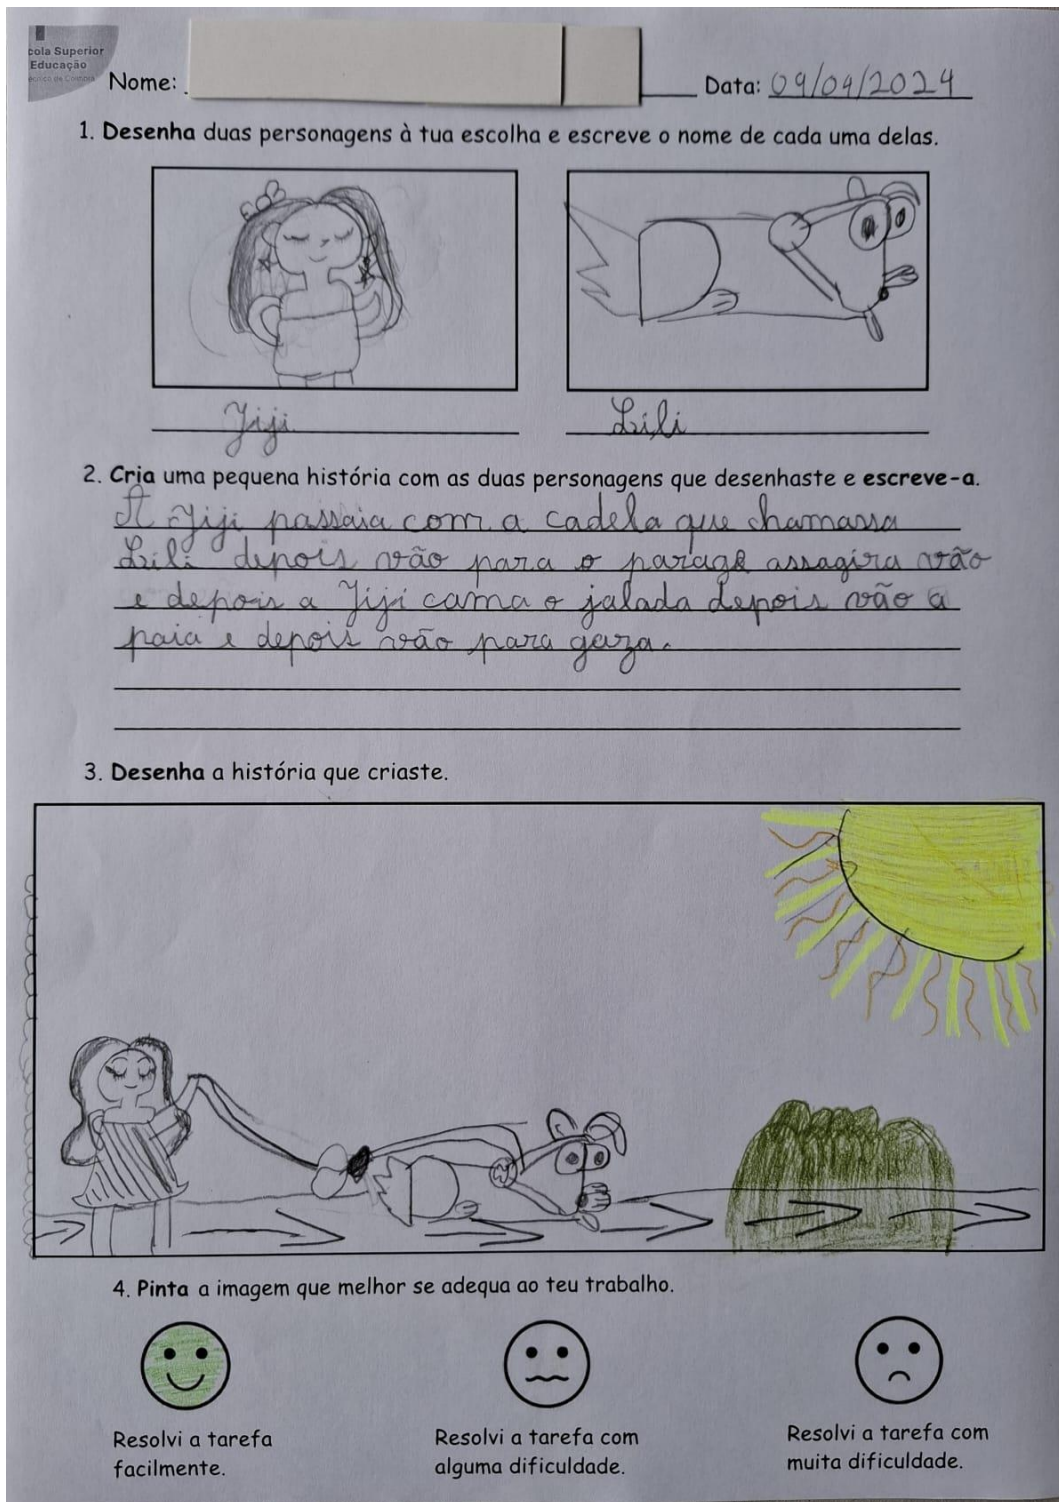 cola Superior
Educação
Nome: Data: 09/04/2024
1. Desenha duas personagens à tua escolha e escreve o nome de cada uma delas.
Jiji Lili
2. Cria uma pequena história com as duas personagens que desenhaste e escreve-a.
A Jiji passaia com a cadela que chamassa
Lili depois vão para o parage assagira vão
e depois a Jiji cama o jalada depois vão a
paia e depois vão para gaza.
3. Desenha a história que criaste.
4. Pinta a imagem que melhor se adequa ao teu trabalho.
Resolvi a tarefa facilmente.
Resolvi a tarefa com alguma dificuldade.
Resolvi a tarefa com muita dificuldade.